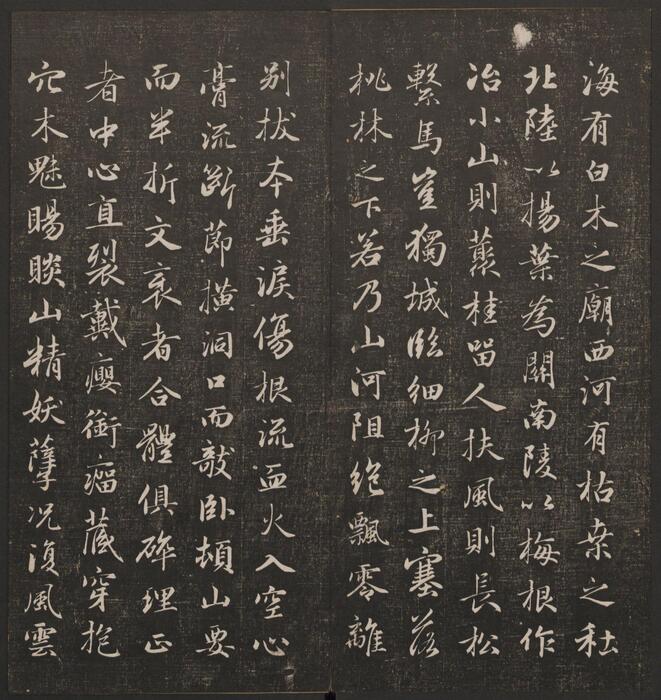 海有白木之廟西河有枯桒之社
北陸以揚葉為關南陵以梅根作
冶小山則藂桂留人扶風則長松
繫馬豈獨城臨細柳之上塞落
桃林之下若乃山河阻絶飄零離
別拔本垂淚傷根流血火入空心
膏流斷節橫洞口而敧卧頓山要
而半折文袤者合體俱碎理正
者中心直裂戴癭銜瘤藏穿抱
穴木魅賜睒山精妖孽况復風雲